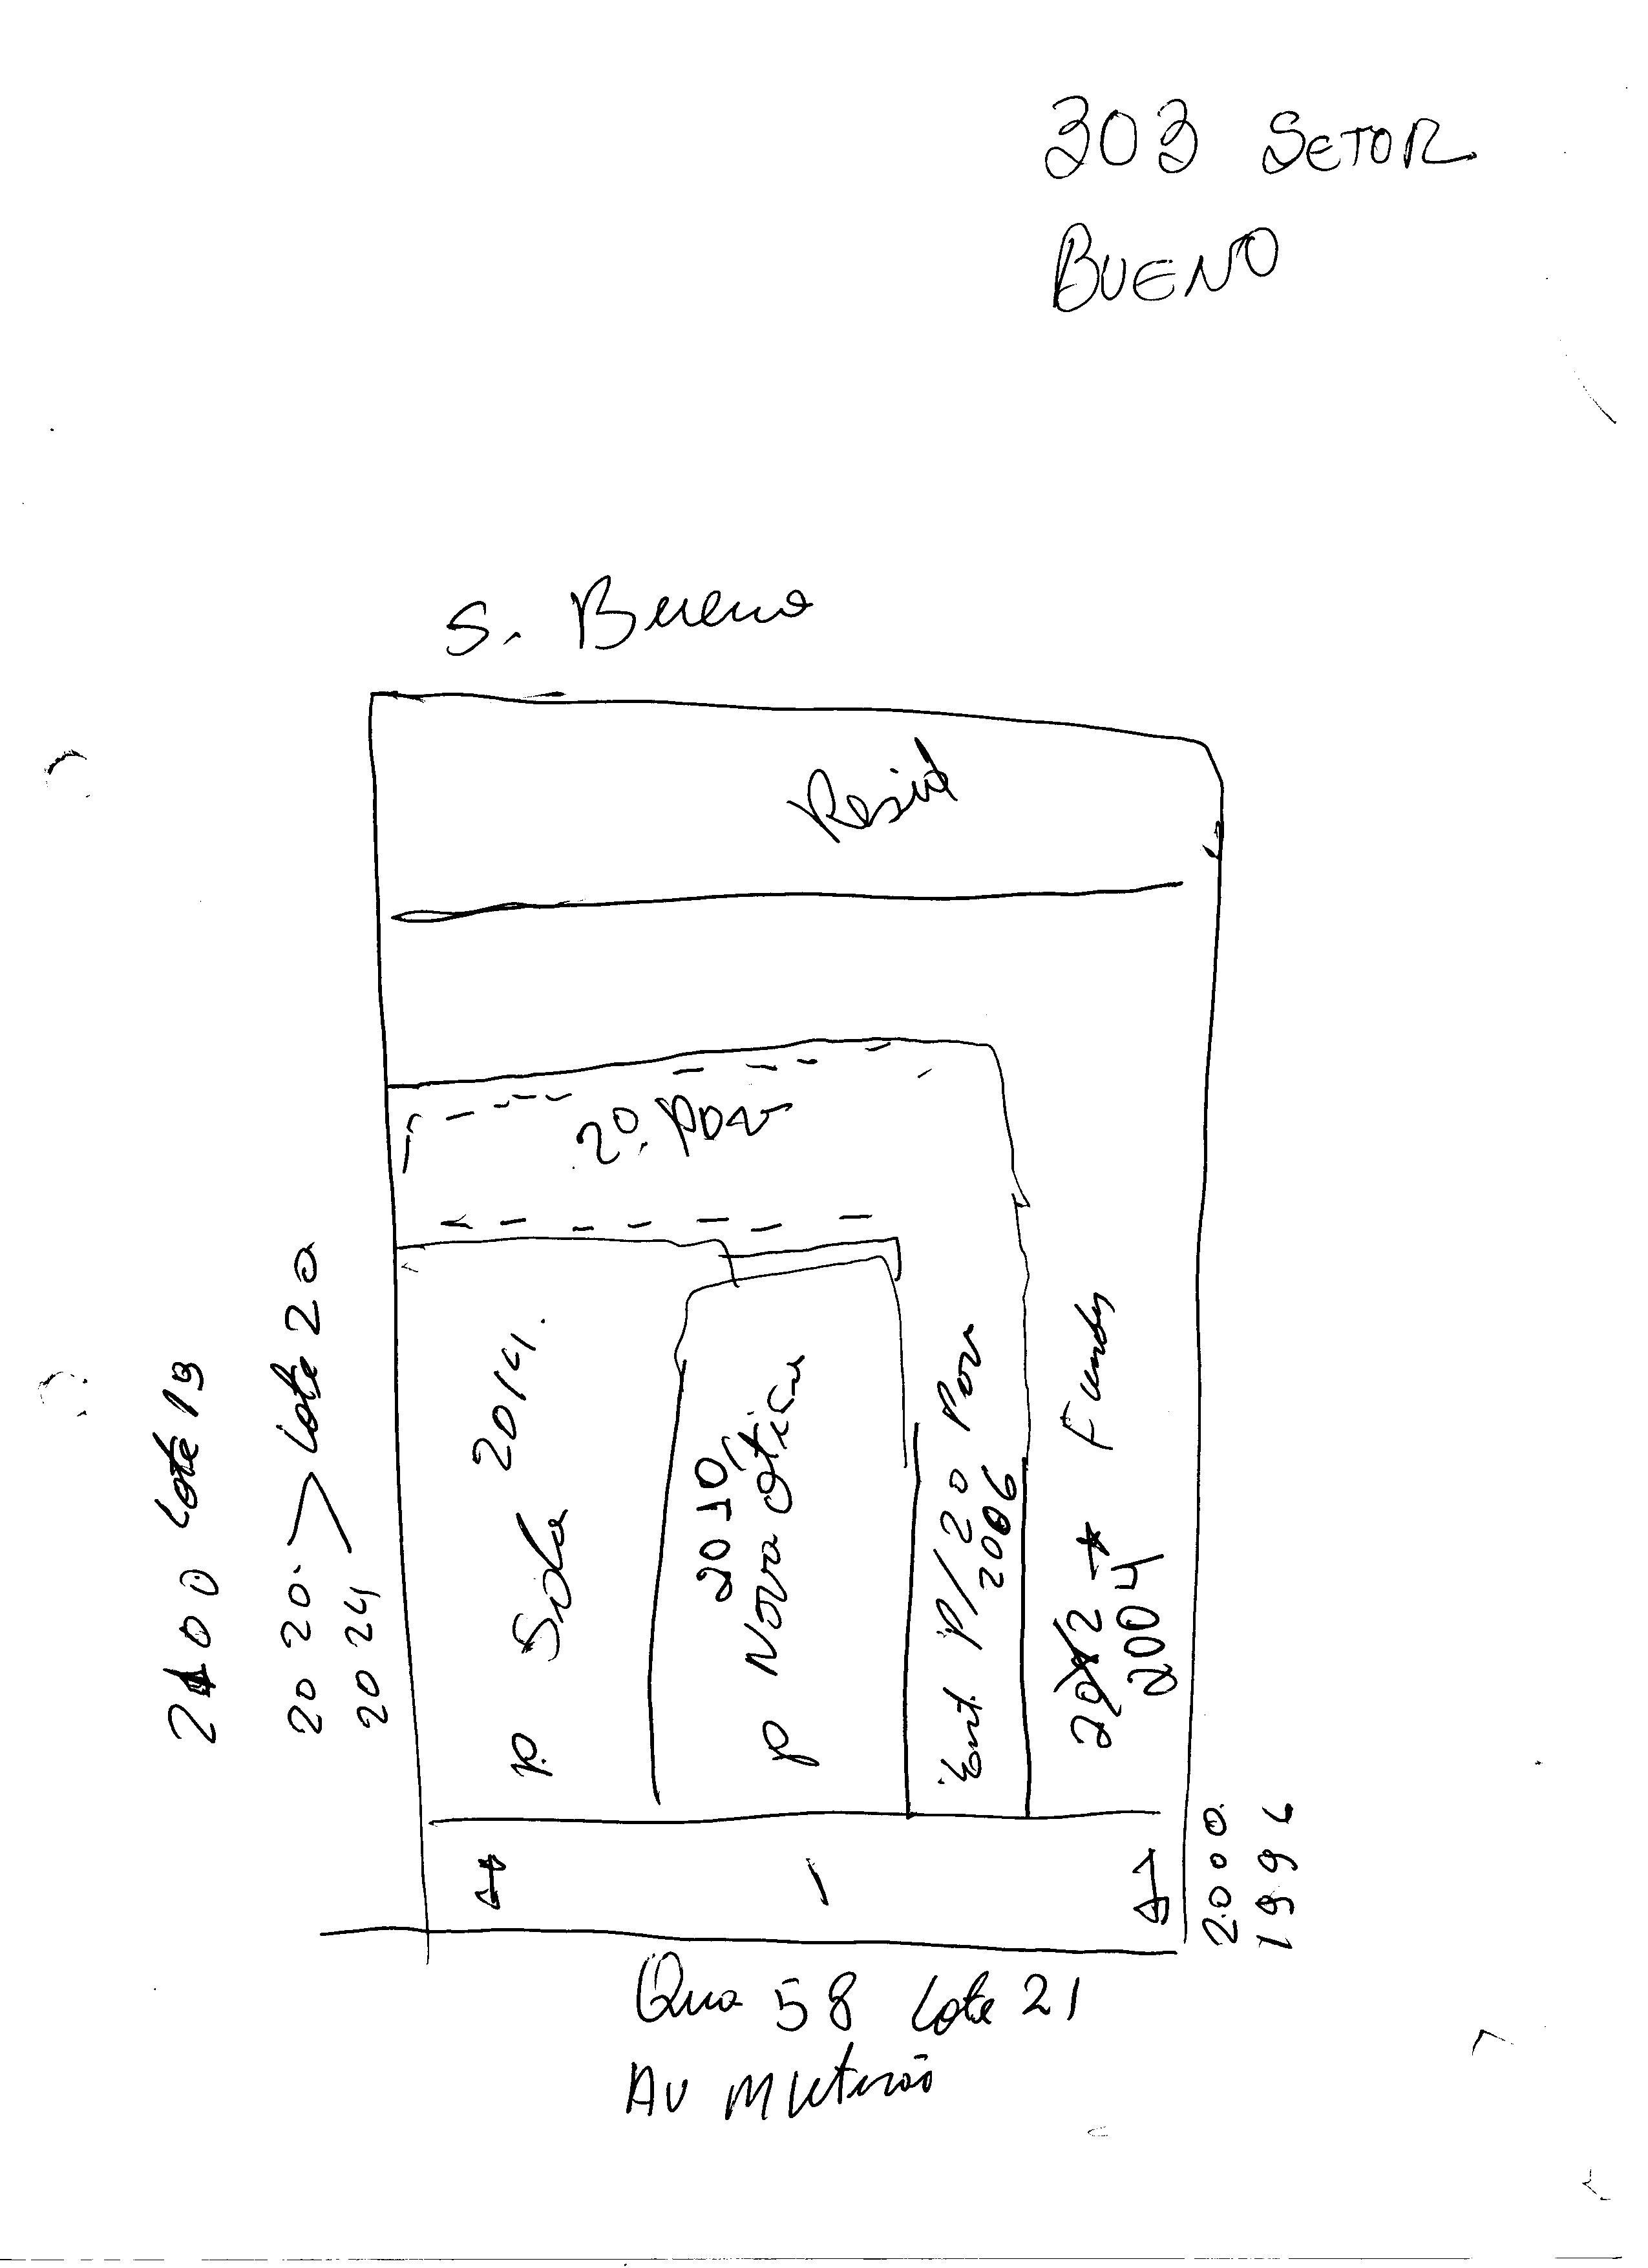 303 SETOR
BUENO
S. Bueno
Resid
2º. Pav
2100 Lote 19
2020. > Lote 20
2024
P. Sala 2014.
2010
P Nova Ótica
Ent. P/ 2º Pav
2006
Fundos
2004
2000.
1996
Qua 58 Lote 21
AV Mutirão